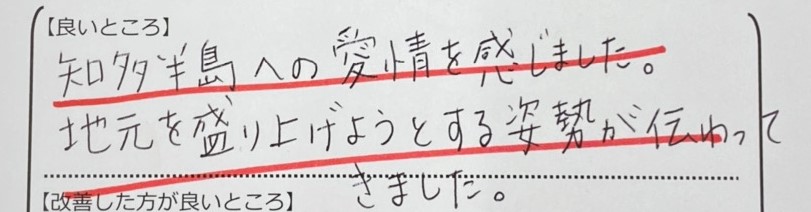 【良いところ】
知多半島への愛情を感じました。
地元を盛り上げようとする姿勢が伝わって
きました。
【改善した方が良いところ】